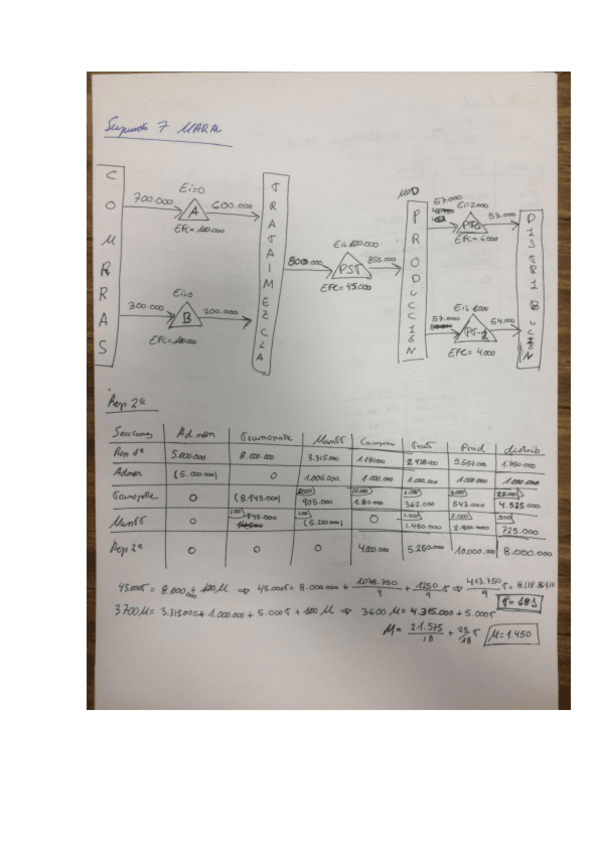 Supuesto 7 MARAL
COMPRAS
700.000
Ei=0
A
600.000
EFC=100.000
300.000
Ei=0
B
200.000
EFC=100.000
TRATAIMEZCLA
800.000
Ei=100.000
PST
855.000
EFC=45.000
MOD
PRODUCCIÓN
57.000
Ei=2000
53.000
EFC=6.000
57.000
Ei=1000
PT-2
54.000
EFC=4.000
DISTRIBUCIÓN
Rep 2ª
Secciones Admón Transporte Mantt Compra Trat Prod distrib
Rep 1ª 5.000.000 8.000.000 3.315.000 2.478.000 1.750.000
Admon (5.000.000) 0 1.000.000 1.000.000 1.000.000 1.000.000 1.000.000
Transporte 0 (8.145.000) 905.000 362.000 543.000 4.525.000
Mantt 0 145.000 (5.220.000) 0 1.450.000 725.000
Rep 2ª 0 0 0 4.000.000 5.250.000 10.000.000 8.000.000
45.000T = 8.000.000 + 100M ⇒ 45.000T = 8.000.000 + 1078.750/9 + 1250/9 T ⇒ 403.750/9 T =
T=181
3700M = 3.315.000 + 1.000.000 + 5.000T + 100M ⇒ 3600M = 4.315.000 + 5.000T
M = 21.575/18 + 25/18 T M=1.450